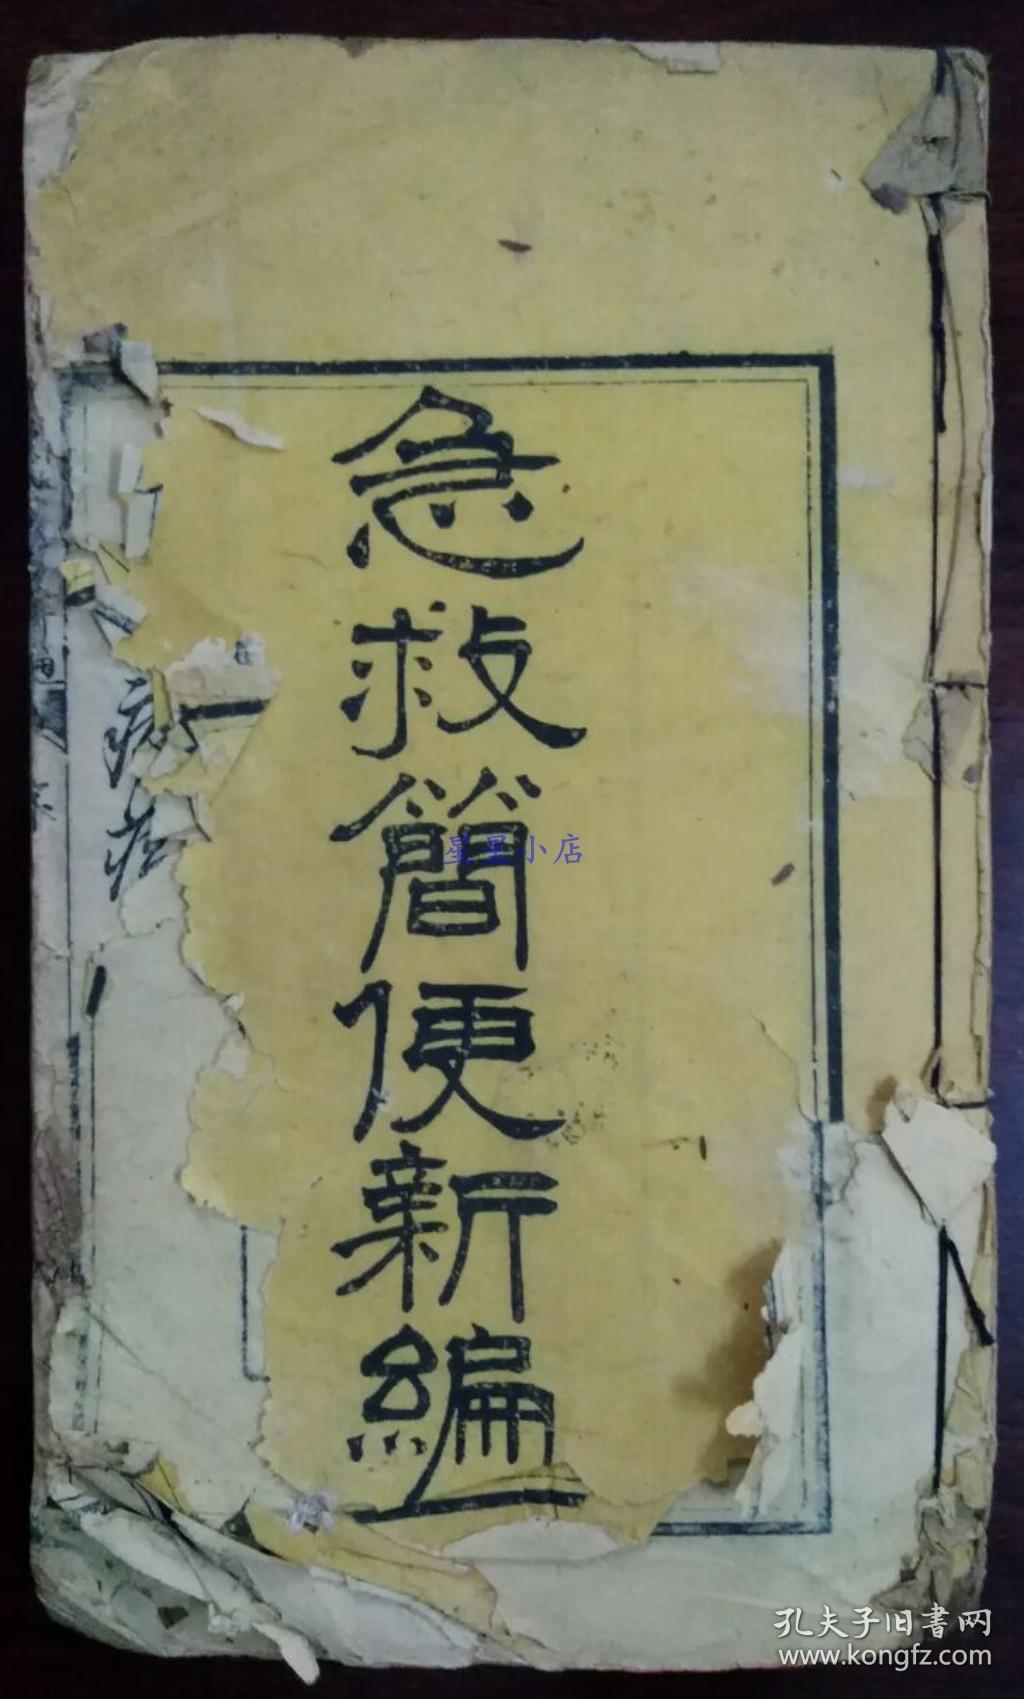 急救簡便新編
星星小店
孔夫子旧書网
www.kongfz.com